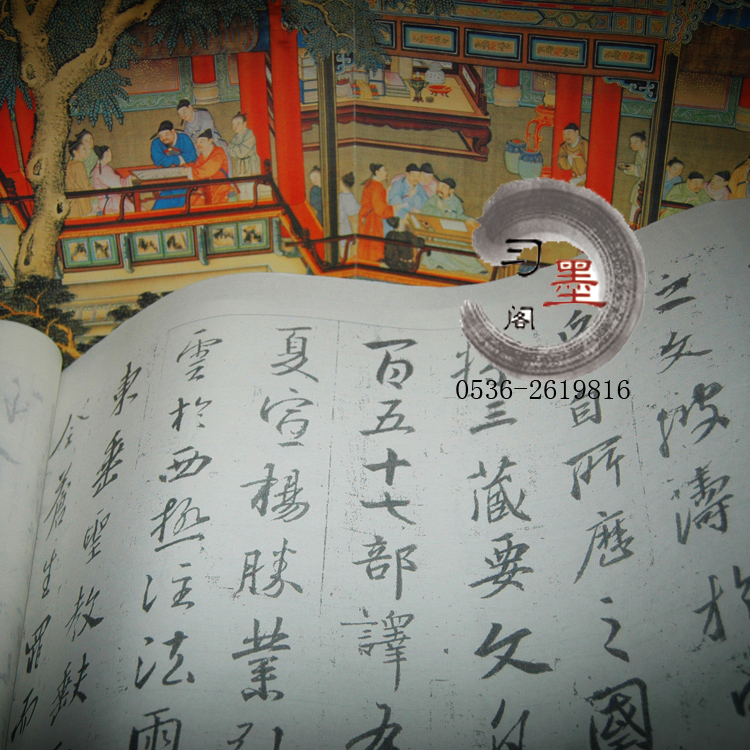 习墨阁
0536-2619816
之文波濤於
自所歷之國
將三藏要文凡
百五十七部譯布
夏宣揚勝業引
雲於西極注法雨
東垂聖教缺
全蒼生罪而